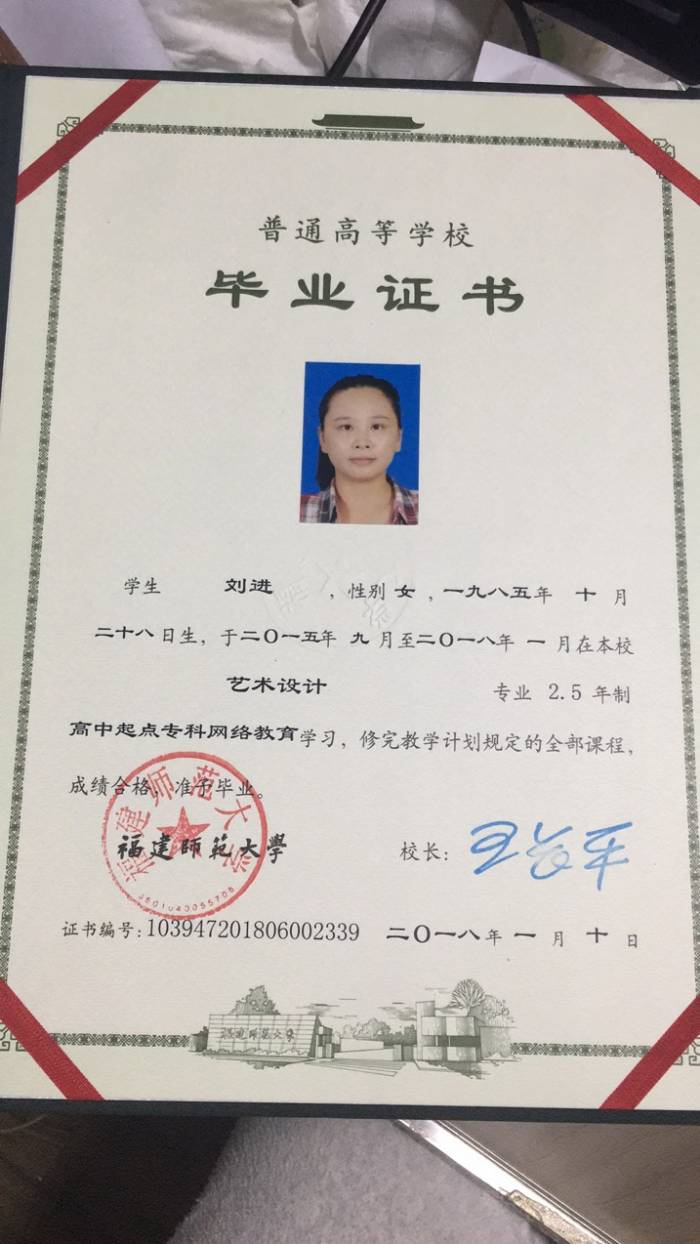 普通高等学校
毕业证书
学生 刘进 ，性别 女 ，一九八五年 十 月
二十八日生，于二〇一五年 九 月至二〇一八年 一 月在本校
艺术设计 专业 2.5 年制
高中起点专科网络教育学习，修完教学计划规定的全部课程，
成绩合格，准予毕业。
福建师范大学
福建師範大學
校长：
证书编号：103947201806002339 二〇一八年 一 月 十 日
福建师范大学